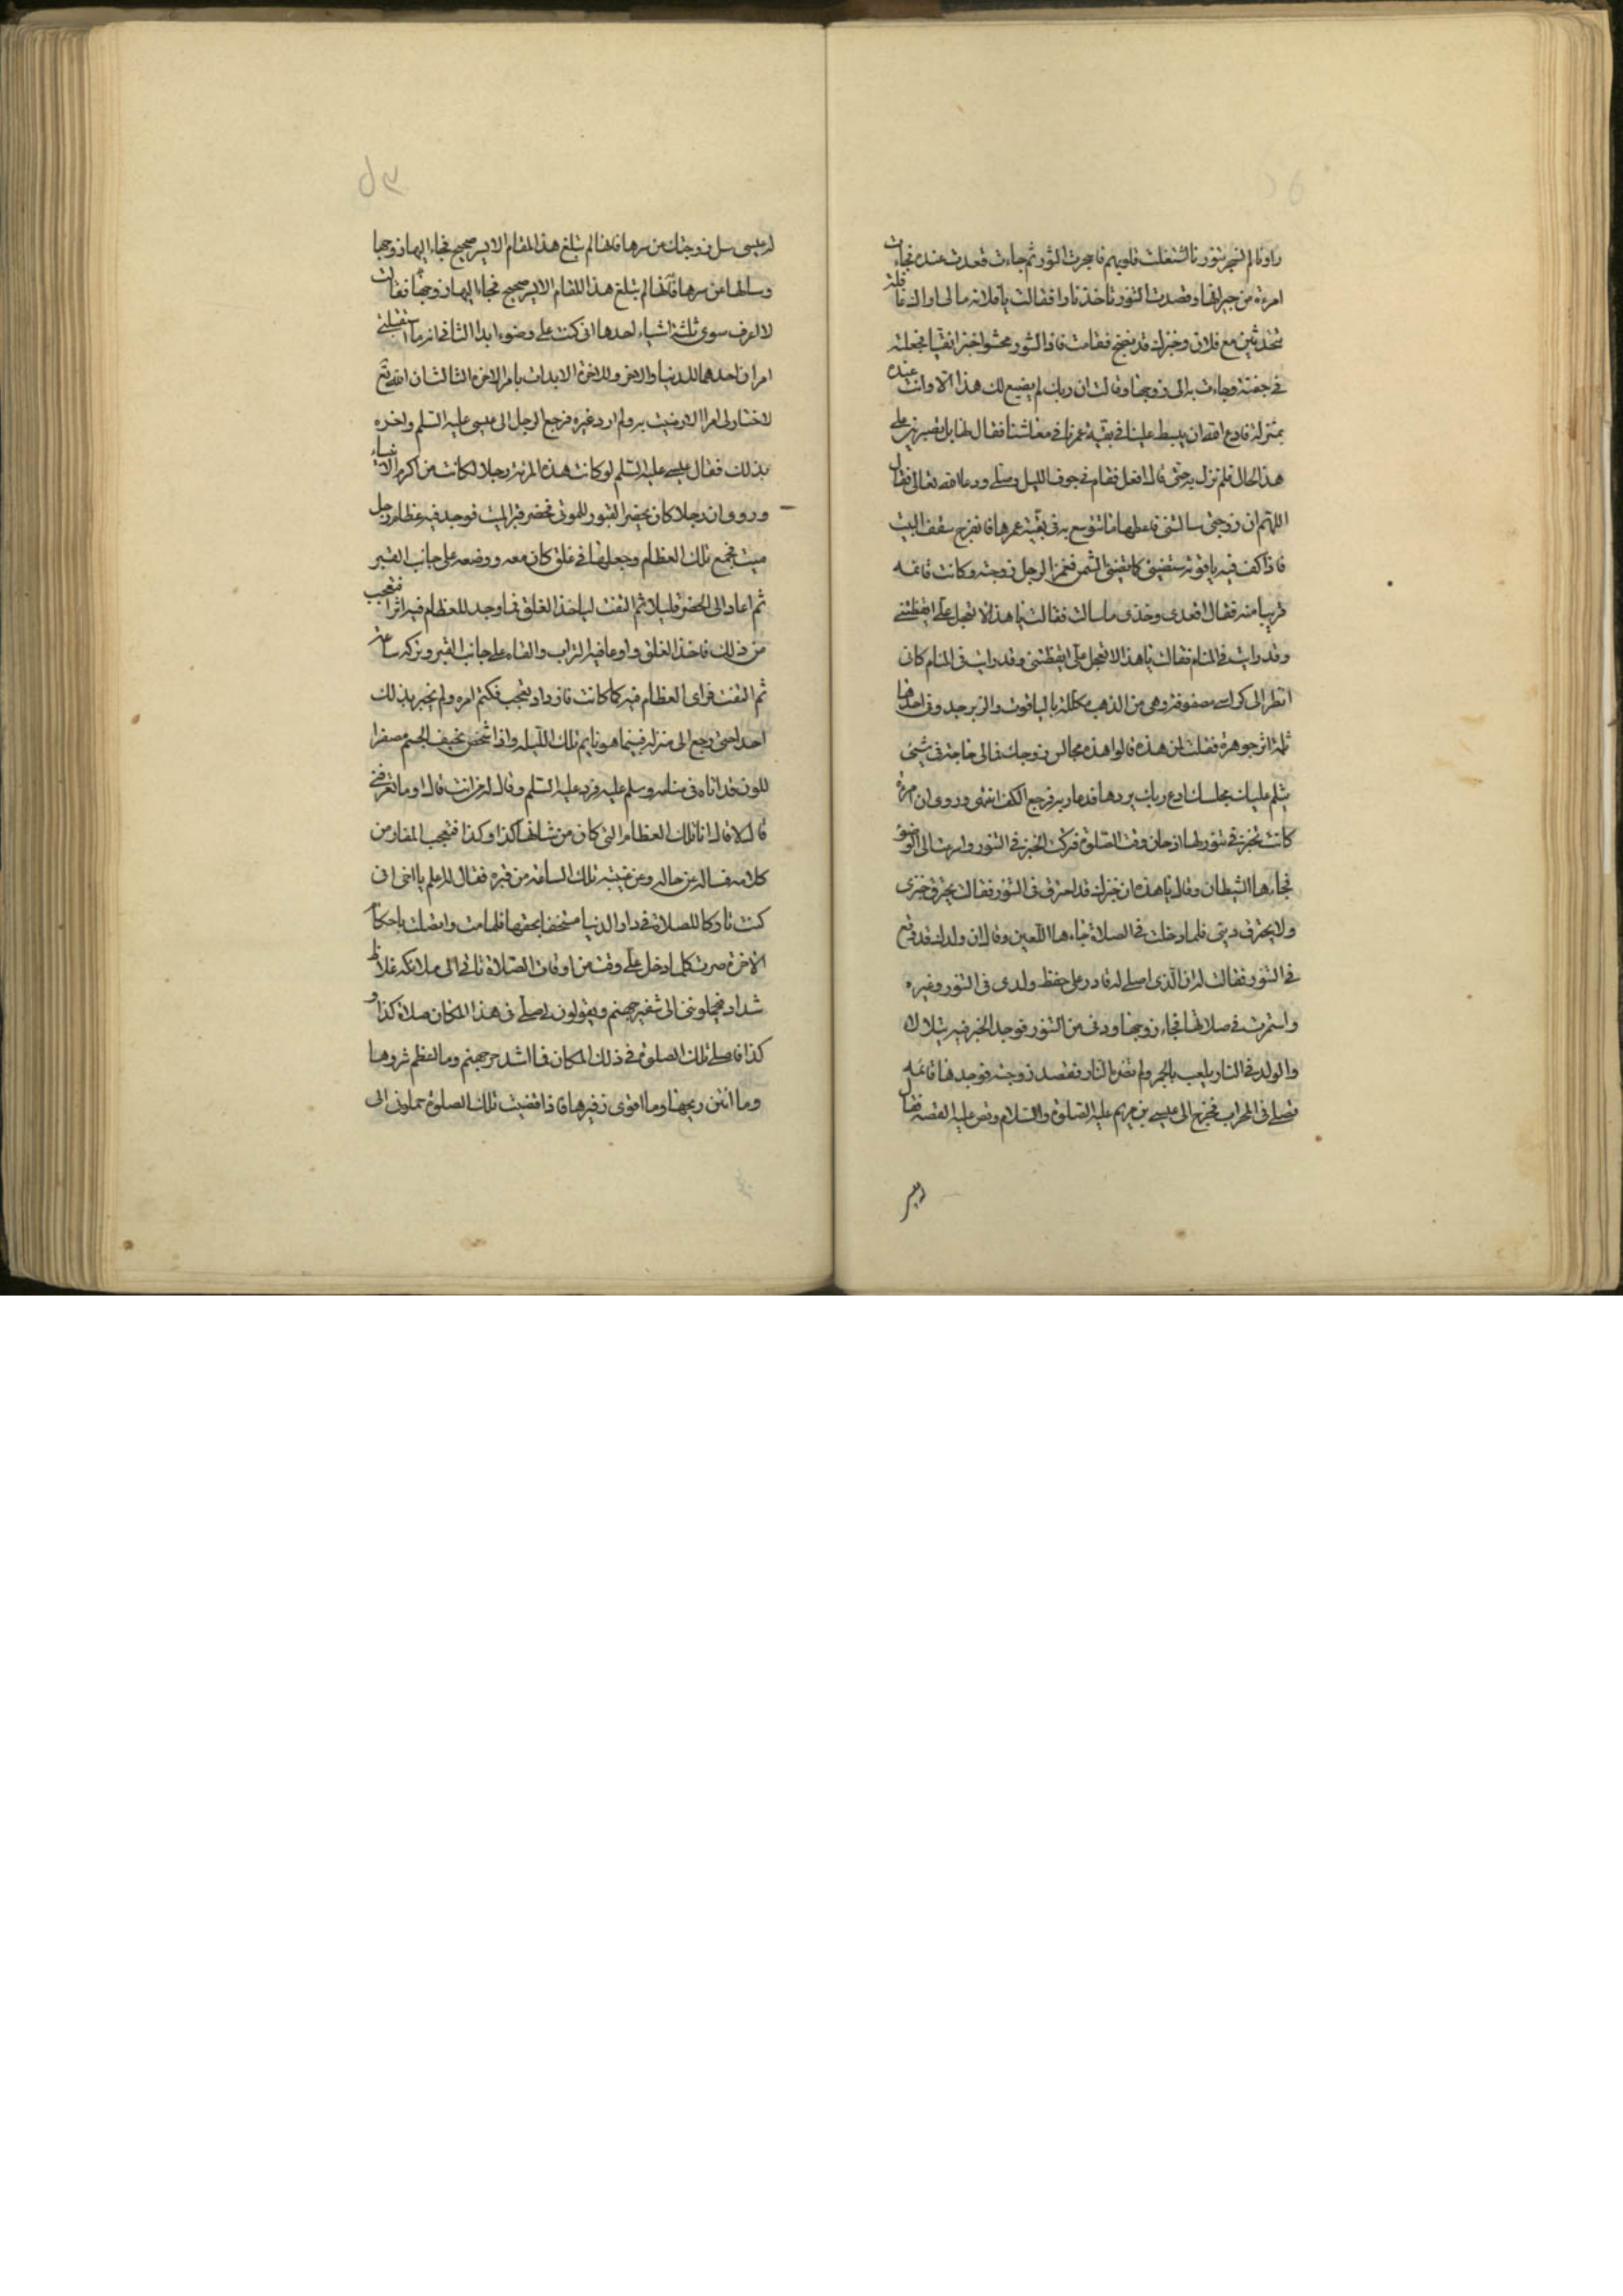 راونا لم نسجر تنورنا اشتغلت قلوبهم فاسجرت التنور ثم جاءت قعدت عنده فجاءت
امرءة من جيرانها وقصدت التنور تاخذ نارا فقالت يا فلانة مالى اراك غافلة
تتحدثين مع فلان وخبزك قد نضج فقامت فاذا التنور محشوا خبزا نقيا فجعلته
فى جفنة وجاءت به الى زوجها وقالت ان ربك لم يصنع لك هذا الا وانت عنده
بمنزلة فادع الله ان يبسط علينا فى بقية عمرنا فى معاشنا فقال لها بل نصبر على
هذا الحال فلم تزل به حتى قال افعل فقام فى جوف الليل وصلى ودعا الله تعالى فقال
اللهم ان زوجتى سالتنى فاعطها ما تتوسع به فى بقية عمرها فانفرج سقف البيت
فاذا كف فيه ياقوتة تضيئ كما تضيئ الشمس فغمز الرجل زوجته وكانت نائمة
قريبا منه فقال اقعدى وخذى ما سالت فقالت يا هذا لا تعجل على ايقظتنى
وقد رايت فى المنام فقالت يا هذا لا تعجل على ايقظتنى وقد رايت فى المنام كان
انظر الى كراسى مصفوفة وهى من الذهب مكللة بالياقوت والزبرجد وفى احدها
ثلمة اثر جوهرة فقلت لمن هذه قالوا هذه مجالس زوجك فمالى حاجة فى شيئ
يثلم عليك مجلسك ادع ربك يردها فدعا ربه فرجع الكف انتهى وروى ان امرءة
كانت تخبز فى تنور لها اذ حان وقت الصلوة فتركت الخبز فى التنور واسرعت الى الوضوء
فجاءها الشيطان وقال يا هذه ان خبزك قد احترق فى التنور فقالت يحترق خبزى
ولا يحترق دينى فلما دخلت فى الصلاة جاءها اللعين وقال ان ولدك قد وقع
فى التنور فقالت له ان الذى اصلى له قادر على حفظ ولدى فى التنور وغيره
واستمرت فى صلاتها فجاء زوجها ودنى من التنور فوجد الخبز فيه يتلالا
والولد فى النار يلعب بالجمر ولم تضره النار فقصد زوجته فوجدها قائمه
تصلى فى المحراب فخرج الى عيسى بن مريم عليه الصلوة والسلام وقص عليه القصة فقال
له عيسى سل زوجتك عن سرها فانها لم تبلغ هذا المقام الا لسر صحيح فجاء اليها زوجها
وسالها عن سرها فانها لم تبلغ هذا المقام الا لسر صحيح فجاء اليها زوجها فقالت
لا اعرف سوى ثلثة اشياء احدها انى كنت على وضوء ابدا الثانى انه ما استقبلنى
امران احدهما للدنيا والاخر للاخرة الا بدات بامر الاخرة الثالث ان الله تع
لا اختار لى امرا الا رضيت به ولم ارد غيره فرجع الرجل الى عيسى عليه السلم واخبره
بذلك فقال عيسى عليه السلم لو كانت هذه المرئة رجلا لكانت من اكرم الانبياء
وروى ان رجلا كان يحضر القبور للموتى فحضر قبر الميت فوجد فيه عظام رجل
ميت فجمع تلك العظام وجعلها فى غلق كان معه ووضعه على جانب القبر
ثم اعاد الى الحضر قليلا ثم التفت لياخذ الغلق فما وجد للعظام فيه اثرا فتعجب
من ذلك فاخذ الغلق واوعا فيه التراب والقاه على جانب القبر وتركه ساعة
ثم التفت فراى العظام فيه كما كانت فازداد تعجب فكتم امره ولم يخبر بذلك
احدا حتى رجع الى منزله فبينما هو نايم تلك الليلة واذا شخص نحيف الجسم مصفرا
للون قد اتاه فى منامه وسلم عليه فرد عليه السلم وقال له من انت قال او ما تعرفنى
قال لا قال انا تلك العظام التى كان من شانها كذا وكذا فتعجب المقار من
كلامه فساله عن حاله وعن غيبته تلك الساعة من قبره فقال له اعلم يا اخى انى
كنت تاركا للصلاة فى دار الدنيا مستخفا بحقها فلما مت واتصلت باحكام
الاخرة صرت كلما دخل على وقت من اوقات الصلاة تاتى الى ملائكة غلاظ
شداد فيحملوننى الى شفير جهنم ويقولون لى صل فى هذا المكان صلاة كذا و
كذا فاصلى تلك الصلوة فى ذلك المكان فما اشد حر جهنم وما اعظم شرورها
وما انتن ريحها وما اقوى زفيرها فاذا قضيت تلك الصلوة حملونى الى